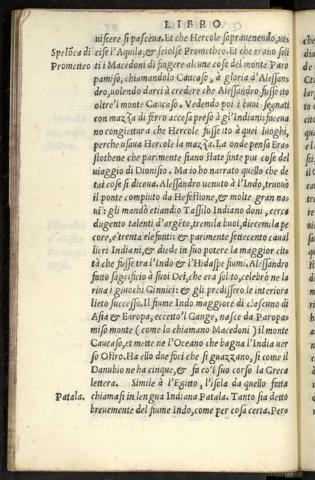 LIBRO
viscere si pasceva. Et che Hercole sopravenendo, uc=
Spelõca di cise l'Aquila, & sciolse Prometheo. Et che erano soli
Prometeo ti i Macedoni di fingere alcune cose del monte Paro
pamiso, chiamandolo Caucaso, à gloria d'Alessan=
dro, volendo darci à credere che Alessandro fusse ito
oltre'l monte Caucaso. Vedendo poi i buoi segnati
con mazza di ferro accesa presò à gl'Indiani faceva
no congiettura che Hercole fusse ito à quei luoghi,
perche usava Hercole la mazza. La onde pensa Era=
stothene che parimente siano state finte piu cose del
viaggio di Dionisio. Ma io ho narrato quello che de
tai cose si diceva. Alessandro venuto à l'Indo, truovò
il ponte compiuto da Hefestione, & molte gran na=
vi: gli mandò etiandio Tassilo Indiano doni, cerca
dugento talenti d'argẽto, tremila buoi, diecemila pe
core, e trenta elefanti: & parimente settecento caual
lieri Indiani, & diede in suo potere la maggior cit=
tà che fusse tra l'Indo & l'Hidaspe fiumi. Alessandro
fatto sagrificio à suoi Dei, che era solito, celebrò ne la
riva i giuochi Ginnici: & gli predissero le interiora
lieto successo. Il fiume Indo maggiore di ciascuno di
Asia & Europa, eccetto'l Gange, nasce da Paropa=
miso monte (come lo chiamano Macedoni) il monte
Caucaso, et mette ne l'Oceano che bagna l'India ver
so Ostro. Ha ello due foci che si guazzano, sì come il
Danubio ne ha cinque, & fa co'l suo corso la Greca
lettera. Simile à l'Egitto, l'isola da quello fatta
Patala. chiamasi in lengua Indiana Patala. Tanto sia detto
brevemente del fiume Indo, come per cosa certa. Pers